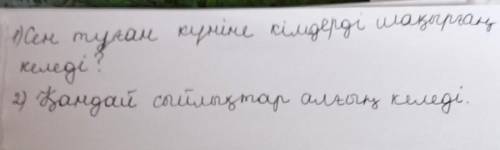 1) Сен туған күніңе кімдерді шақырғаң
келеді?
2) Қандай сыйлықтар алғың келеді.